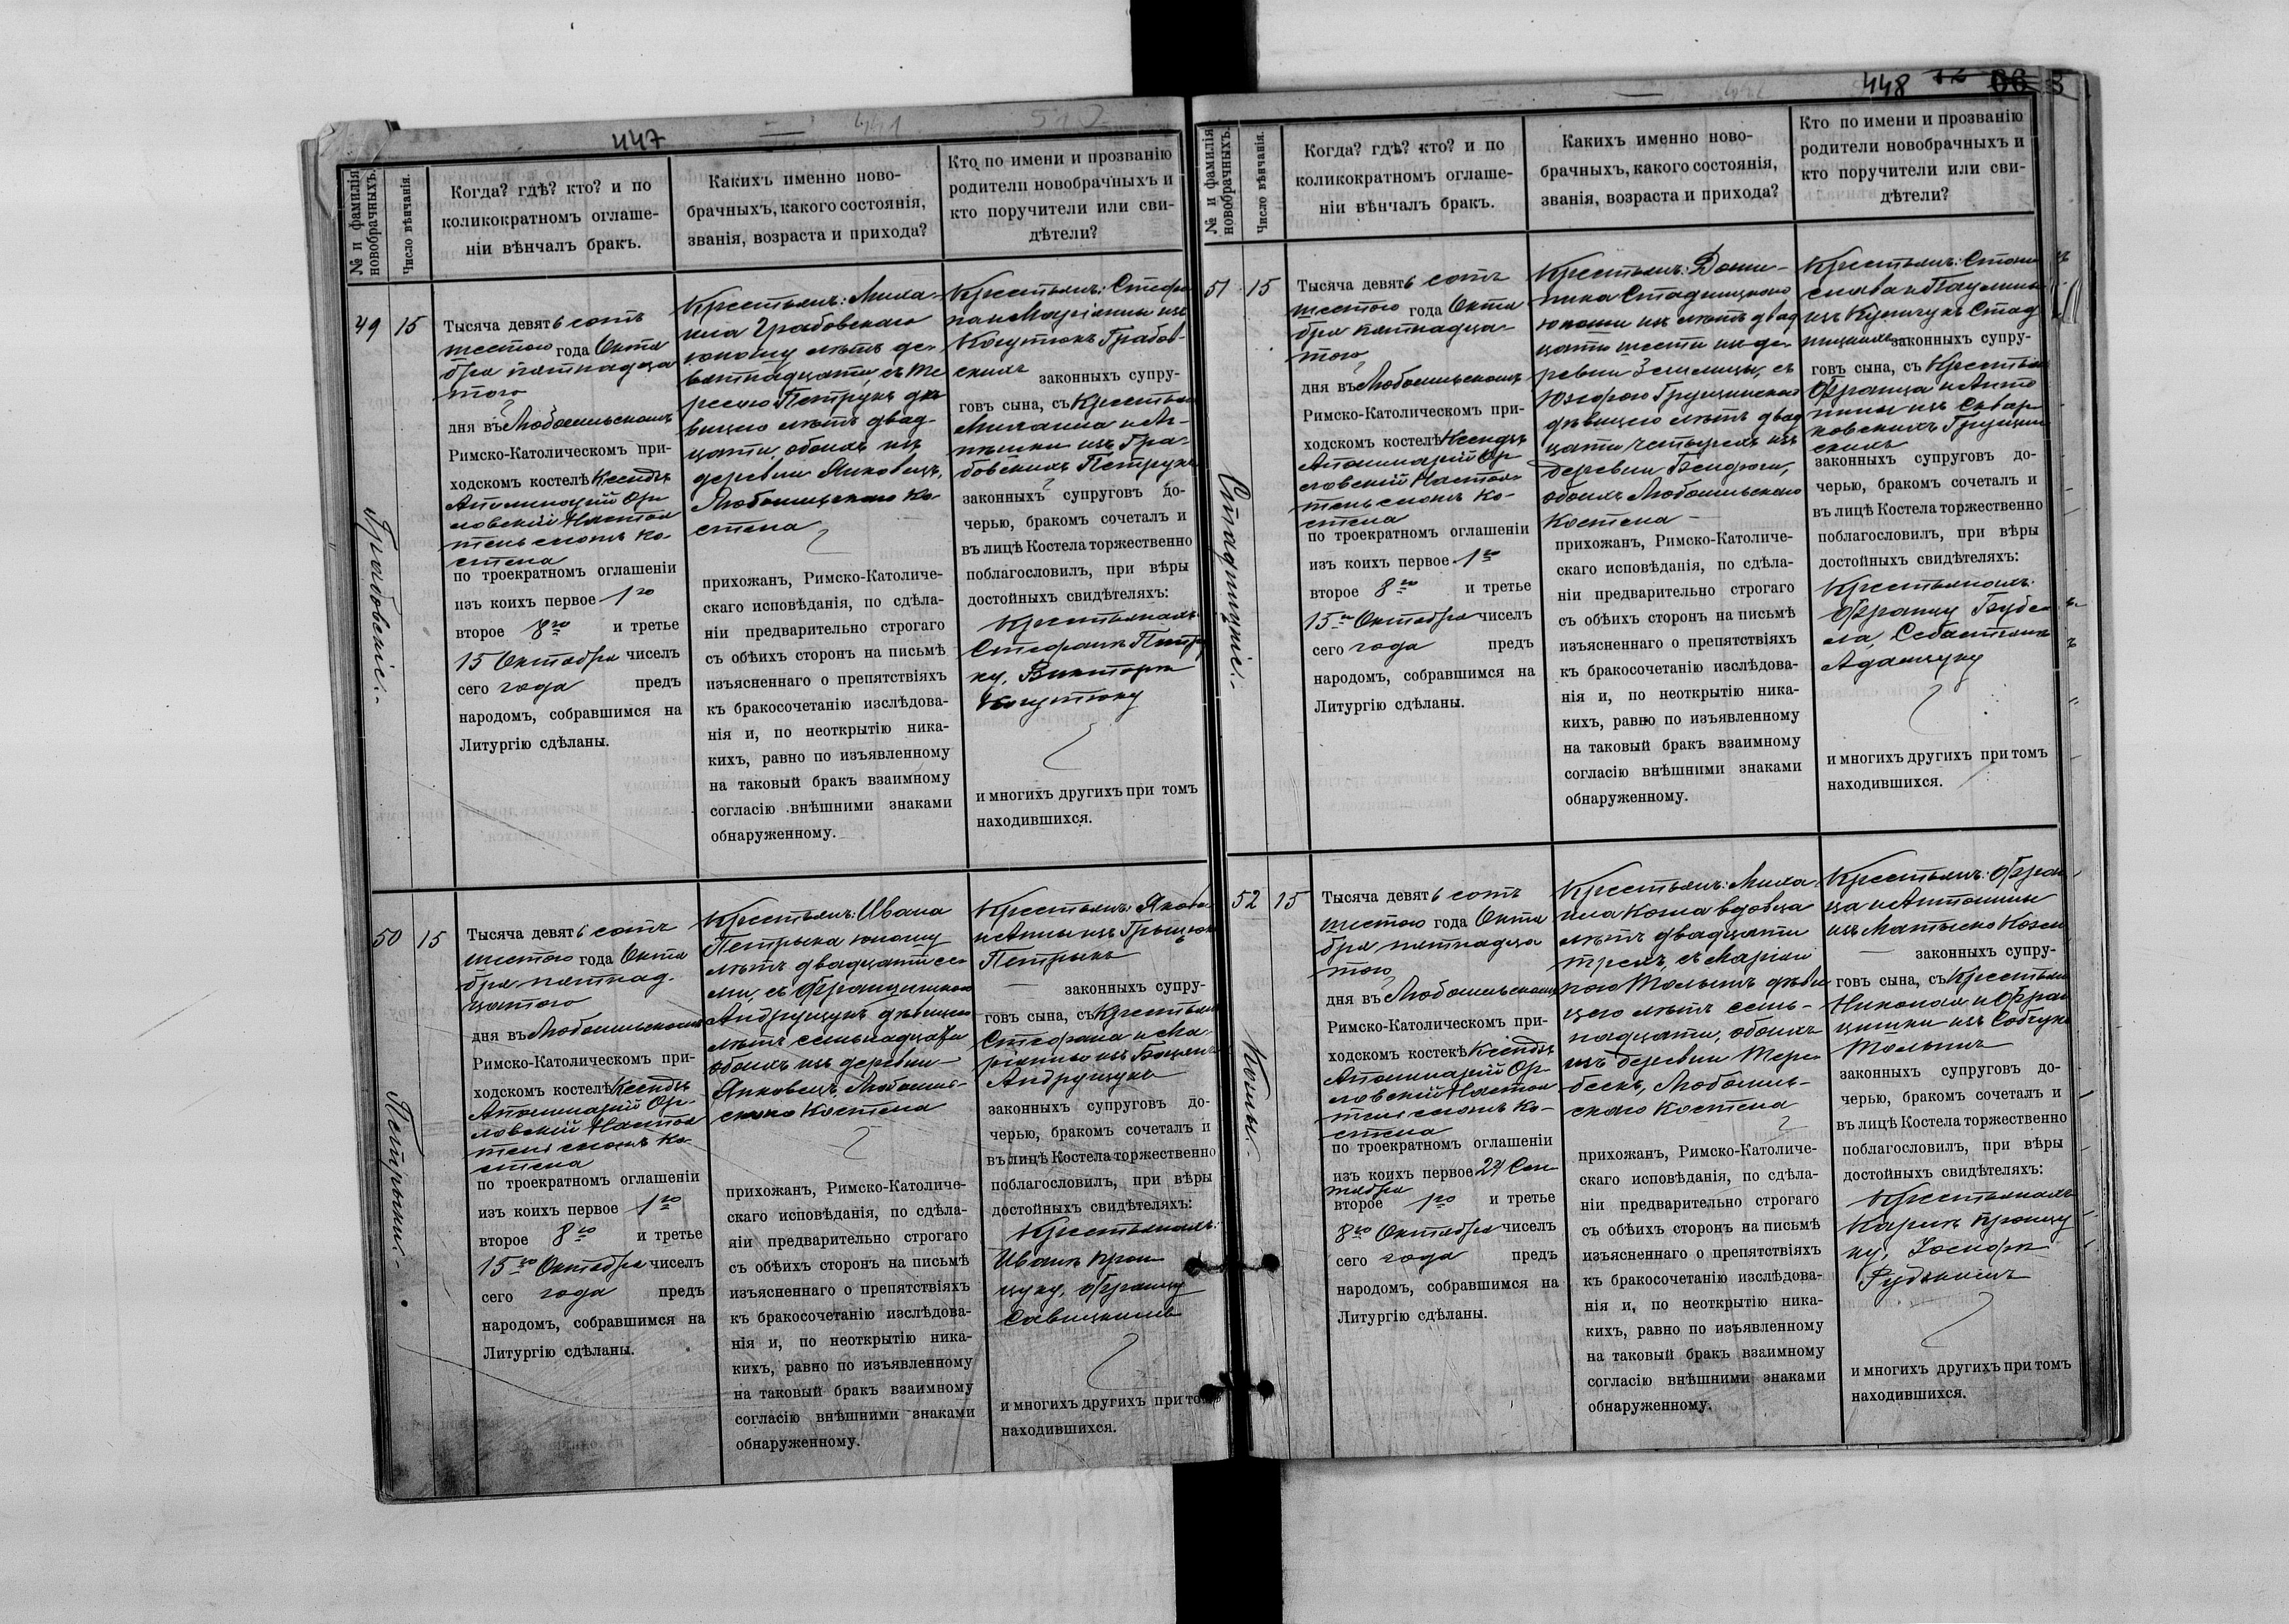 447
№ и фамилія новобрачныхъ.
Число вѣнчанія.
Когда? гдѣ? кто? и по
коликократномъ оглаше-
ніи вѣнчалъ бракъ.
Какихъ именно ново-
брачныхъ, какого состоянія,
званія, возраста и прихода?
Кто по имени и прозванію
родители новобрачныхъ и
кто поручители или сви-
дѣтели?
49
Грабовскіе.-
15
Тысяча девятьсотъ
шестого года Октя
бря пятнадца
того
дня въ Любомльскомъ
Римско-Католическомъ при-
ходскомъ костелѣ Ксендзъ
Аполинарій Ор-
ловскій Настоя
тель сего Ко-
стела
по троекратномъ оглашеніи
изъ коихъ первое 1го
второе 8го и третье
15 Октября чиселъ
сего года предъ
народомъ, собравшимся на
Литургію сдѣланы.
Крестьянъ: Миха-
ила Грабовскаго
юношу лѣтъ де-
вятнадцати, съ Те
ресою Петрукъ дѣ
вицею лѣтъ двад-
цати, обоихъ изъ
деревни Янковецъ,
Любомльскаго Ко-
стела
прихожанъ, Римско-Католиче-
скаго исповѣданія, по сдѣла-
ніи предварительно строгаго
съ обѣихъ сторонъ на письмѣ
изъясненнаго о препятствіяхъ
къ бракосочетанію изслѣдова-
нія и, по неоткрытію ника-
кихъ, равно по изъявленному
на таковый бракъ взаимному
согласію внѣшними знаками
обнаруженному.
Крестьянъ: Стефа
на и Маріанны изъ
Когутюкъ Грабов-
скихъ законныхъ супру-
говъ сына, съ Крестьян
Михаила и
изъ Гра-
бовскихъ Петрукъ
законныхъ супруговъ до-
черью, бракомъ сочеталъ и
въ лицѣ Костела торжественно
поблагословилъ, при вѣры
достойныхъ свидѣтеляхъ:
Крестьянахъ
Стефанѣ Петру
ку, Викторѣ
Когутюку
и многихъ другихъ при томъ
находившихся.
50
Петрыки.-
15
Тысяча девятьсотъ
шестого года Октя
бря пятнад-
цатого
дня въ Любомльскомъ
Римско-Католическомъ при-
ходскомъ костелѣ Ксендзъ
Аполинарій Ор-
ловскій Настоя
тель сего Ко-
стела
по троекратномъ оглашеніи
изъ коихъ первое 1го
второе 8го и третье
15го Октября чиселъ
сего года предъ
народомъ, собравшимся на
Литургію сдѣланы.
Крестьянъ: Ивана
Петрыка юношу
лѣтъ двадцати се-
ми, съ Францишкою
Андрущукъ дѣвицею
лѣтъ семьнадцати
обоихъ изъ деревни
Янковецъ, Любомль-
скаго Костела
прихожанъ, Римско-Католиче-
скаго исповѣданія, по сдѣла-
ніи предварительно строгаго
съ обѣихъ сторонъ на письмѣ
изъясненнаго о препятствіяхъ
къ бракосочетанію изслѣдова-
нія и, по неоткрытію ника-
кихъ, равно по изъявленному
на таковый бракъ взаимному
согласію внѣшними знаками
обнаруженному.
Крестьянъ: Якова
и Анны изъ Грыцюкъ
Петрыкъ
законныхъ супру-
говъ сына, съ Крестьян
Стефана и Ма-
ріанны изъ
Андрущукъ
законныхъ супруговъ до-
черью, бракомъ сочеталъ и
въ лицѣ Костела торжественно
поблагословилъ, при вѣры
достойныхъ свидѣтеляхъ:
Крестьянахъ:
Иванѣ Кром
цуку, Францу
Савицкимъ
и многихъ другихъ при томъ
находившихся.
448
№ и фамилія новобрачныхъ.
Число вѣнчанія.
Когда? гдѣ? кто? и по
коликократномъ оглаше-
ніи вѣнчалъ бракъ.
Какихъ именно ново-
брачныхъ, какого состоянія,
званія, возраста и прихода?
Кто по имени и прозванію
родители новобрачныхъ и
кто поручители или сви-
дѣтели?
51
Стадницкіе.-
15
Тысяча девятьсотъ
шестого года Октя
бря пятнадца-
того
дня въ Любомльскомъ
Римско-Католическомъ при-
ходскомъ костелѣ Ксендзъ
Аполинарій Ор
ловскій Настоя-
тель сего Ко-
стела
по троекратномъ оглашеніи
изъ коихъ первое 1го
второе 8го и третье
15го Октября чиселъ
сего года предъ
народомъ, собравшимся на
Литургію сдѣланы.
Крестьянъ: Доми-
ника Стадницкаго
юношу лѣтъ двад
цати шести изъ де-
ревни Землицы, съ
Юзефою Грущинскою
дѣвицею лѣтъ двад
цати четырехъ изъ
деревни
обоихъ Любомльскаго
Костела
прихожанъ, Римско-Католиче-
скаго исповѣданія, по сдѣла-
ніи предварительно строгаго
съ обѣихъ сторонъ на письмѣ
изъясненнаго о препятствіяхъ
къ бракосочетанію изслѣдова-
нія и, по неоткрытію ника-
кихъ, равно по изъявленному
на таковый бракъ взаимному
согласію внѣшними знаками
обнаруженному.
Крестьянъ: Стани
слава и Паулины
изъ Стад
ницкихъ законныхъ супру-
говъ сына, съ Крестьян
Франца и Анто
нины изъ Сквар-
ковскихъ Грущин
скихъ
законныхъ супруговъ до-
черью, бракомъ сочеталъ и
въ лицѣ Костела торжественно
поблагословилъ, при вѣры
достойныхъ свидѣтеляхъ:
Крестьянахъ:
Францу
Себастьянѣ
Адамчуку
и многихъ другихъ при томъ
находившихся.
52
Козлы.-
15
Тысяча девятьсотъ
шестого года Октя
бря пятнадца
того
дня въ Любомльскомъ
Римско-Католическомъ при-
ходскомъ костекѣ Ксендзъ
Аполинарій Ор-
ловскій Настоя
тель сего Ко-
стела
по троекратномъ оглашеніи
изъ коихъ первое 24 Сен
тября
второе 1го и третье
8го Октября чиселъ
сего года предъ
народомъ, собравшимся на
Литургію сдѣланы.
Крестьянъ: Миха-
ила Козла вдовца
лѣтъ двадцати
трехъ, съ Маріан
ною дѣви
цею лѣтъ семь-
надцати, обоихъ
изъ деревни Тере-
бейкъ, Любомль-
скаго Костела
прихожанъ, Римско-Католиче-
скаго исповѣданія, по сдѣла-
ніи предварительно строгаго
съ обѣихъ сторонъ на письмѣ
изъясненнаго о препятствіяхъ
къ бракосочетанію изслѣдова-
нія и, по неоткрытію ника-
кихъ, равно по изъявленному
на таковый бракъ взаимному
согласію внѣшними знаками
обнаруженному.
Крестьянъ: Фран
ца и Антонины
изъ
законныхъ супру-
говъ сына, съ Крестьян
Николая и Фран
цишки изъ Собчукъ
законныхъ супруговъ до-
черью, бракомъ сочеталъ и
въ лицѣ Костела торжественно
поблагословилъ, при вѣры
достойныхъ свидѣтеляхъ:
Крестьянахъ
ку, Іосифѣ
Рудскимъ
и многихъ другихъ при томъ
находившихся.